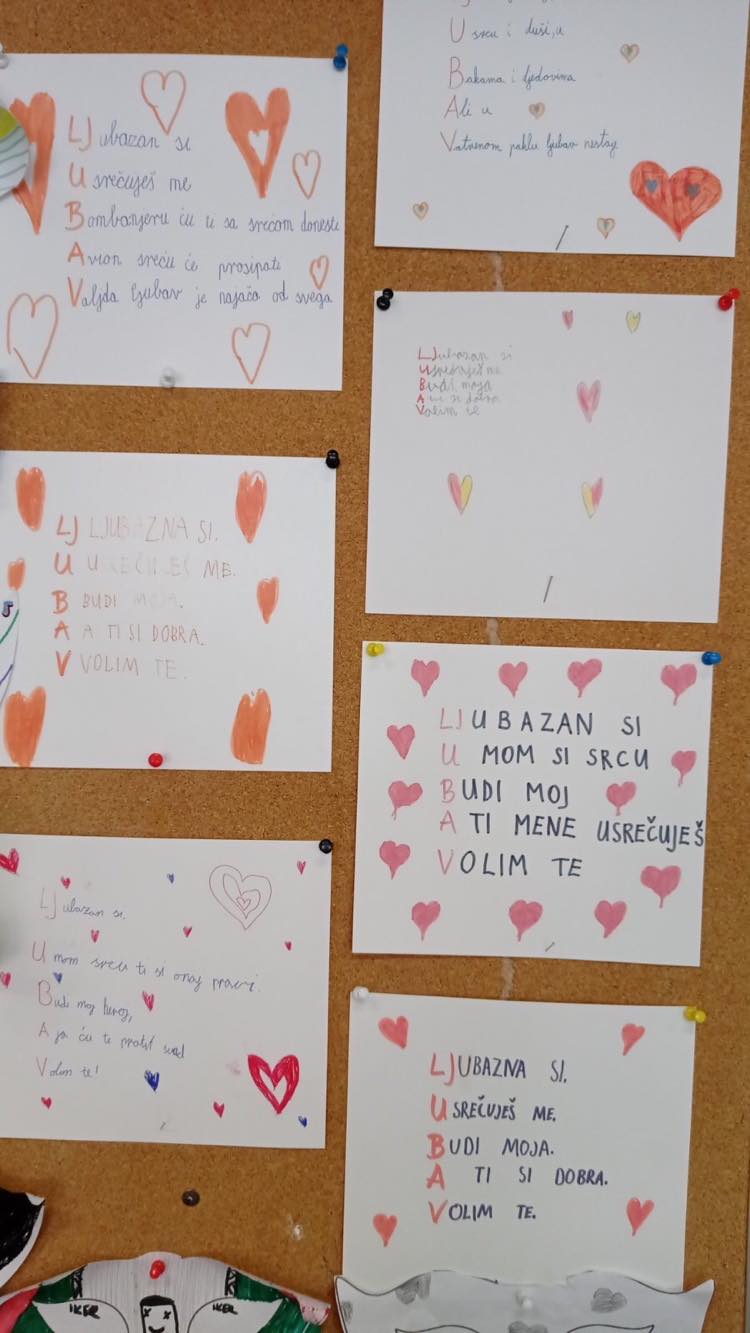 LJubazan si
Usrečuješ me
Bombonjeru ću ti sa srećom donesti
Avion sreću će prosipati
Valjda ljubav je najača od svega
U srcu i duši,u
Bakama i djedovima
Ali u
Vatrenom paklu ljubav nestaje
LJubazan si
Usrečuješ me
Budi moja
A ti si dobra
Volim te
LJ LJUBAZNA SI.
U USREČUJEŠ ME.
B BUDI MOJA.
A A TI SI DOBRA.
V VOLIM TE.
LJUBAZAN SI
U MOM SI SRCU
BUDI MOJ
A TI MENE USREČUJEŠ
VOLIM TE
LJubazan si.
U mom srcu ti si onaj pravi.
Budi moj heroj,
A ja ću te pratit svud
Volim te!
LJUBAZNA SI.
USREČUJEŠ ME.
BUDI MOJA.
A TI SI DOBRA.
VOLIM TE.
IKER
IKER